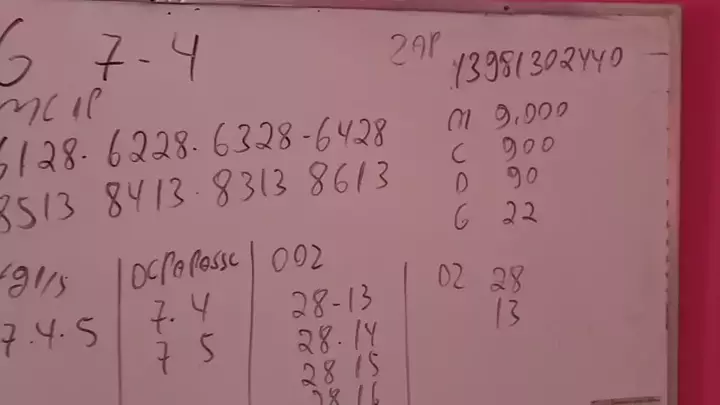 G 7-4
ZAP 13981302440
MC 1P
6128. 6228. 6328-6428
8513 8413. 8313 8613
M 9.000
C 900
D 90
G 22
7.4.5
7. 4
7 5
002
28-13
28.14
28 15
28 16
DZ 28
13